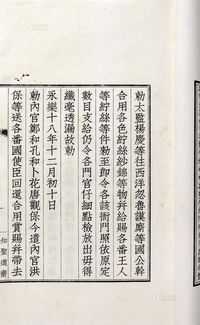 勑太監楊慶等往西洋忽魯謨廝等國公幹
合用各色紵絲紗錦等物幷給賜各番王人
等紵絲等件勑至卽令各該衙門照依原定
數目支給仍令各門官仔細點檢放出毋得
纎毫透漏故勑
永樂十八年十二月初十日
勑內官鄭和孔和卜花唐觀保今遣內官洪
保等送各番國使臣回還合用賞賜幷帶去
知聖道齋